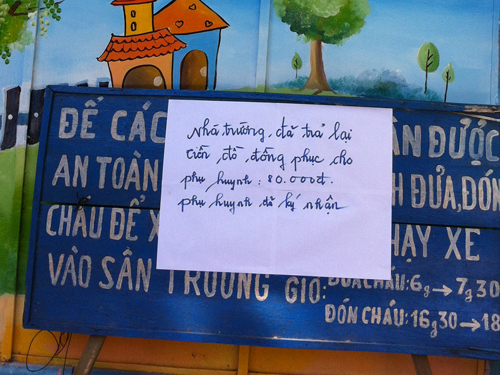 ĐỂ CÁC
ÂN ĐƯỢC
AN TOÀN
H ĐƯA, ĐÓN
CHÁU ĐỂ X
HẠY XE
VÀO SÂN TRƯỜNG GIỜ: ĐƯA CHÁU: 6g→7g30
ĐÓN CHÁU: 16g30→18
Nhà trường đã trả lại
tiền đồ đồng phục cho
phụ huynh: 80.000đ.
phụ huynh đã ký nhận